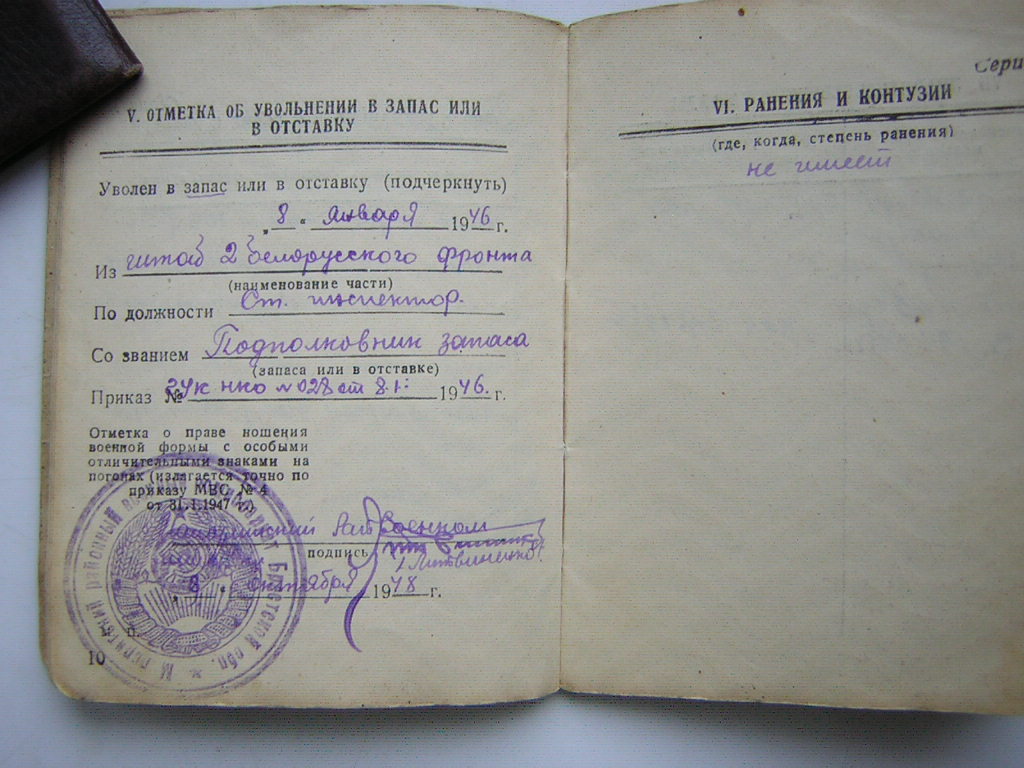 V. ОТМЕТКА ОБ УВОЛЬНЕНИИ В ЗАПАС ИЛИ
В ОТСТАВКУ
Уволен в запас или в отставку (подчеркнуть)
„8“ Января 1946 г.
Из штаб 2 Белорусского фронта
(наименование части)
По должности Ст. инспектор.
Со званием Подполковник запаса
(запаса или в отставке)
Приказ № ГУК НКО №028 от 8.1. 1946. г.
Отметка о праве ношения
военной формы с особыми
отличительными знаками на
погонах (излагается точно по
приказу МВС № 4
от 31.1.1947 г.)
Военком
подпись
Литвиненко
„8“ октября 1948 г.
м. п.
районный военный комиссариат Брестской обл.
10
Сери
VI. РАНЕНИЯ И КОНТУЗИИ
(где, когда, степень ранения)
не имеет